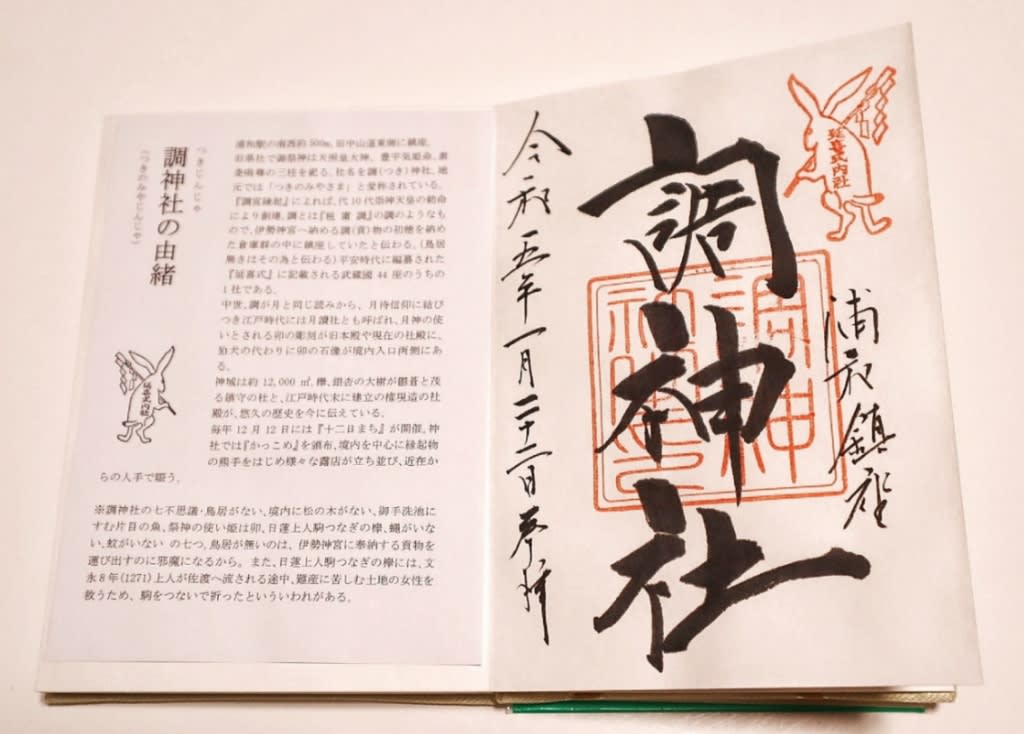 つきじんじゃ
調神社の由緒
(つきのみやじんじゃ)
浦和駅の南西約500m、旧中山道東側に鎮座。
旧県社で御祭神は天照皇大神、豊宇気姫命、素
盞嗚尊の三柱を祀る。社名を調(つき)神社、地
元では「つきのみやさま」と愛称されている。
『調宮縁起』によれば、代10代崇神天皇の勅命
により創建。調とは『租 庸 調』の調のようなも
ので、伊勢神宮へ納める調(貢)物の初穂を納め
た倉庫群の中に鎮座していたと伝わる。(鳥居
無きはその為と伝わる)平安時代に編纂された
『延喜式』に記載される武蔵國44座のうちの
1社である。
中世、調が月と同じ読みから、月待信仰に結び
つき江戸時代には月讀社とも呼ばれ、月神の使
いとされる卯の彫刻が旧本殿や現在の社殿に、
狛犬の代わりに卯の石像が境内入口両側にあ
る。
神域は約12,000㎡、欅、銀杏の大樹が鬱蒼と茂
る鎮守の杜と、江戸時代末に建立の権現造の社
殿が、悠久の歴史を今に伝えている。
毎年12月12日には『十二日まち』が開催。神
社では『かっこめ』を頒布、境内を中心に縁起物
の熊手をはじめ様々な露店が立ち並び、近在か
らの人手で賑う。
延喜式内社
※調神社の七不思議・鳥居がない、境内に松の木がない、御手洗池に
すむ片目の魚、祭神の使い姫は卯、日蓮上人駒つなぎの欅、蠅がいな
い、蚊がいない の七つ。鳥居が無いのは、 伊勢神宮に奉納する貢物を
運び出すのに邪魔になるから。 また、日蓮上人駒つなぎの欅には、文
永8年(1271)上人が佐渡へ流される途中、難産に苦しむ土地の女性を
救うため、 駒をつないで祈ったといういわれがある。
延喜式内社
浦和鎮座
調神社
令和五年一月二十二日 奉拝